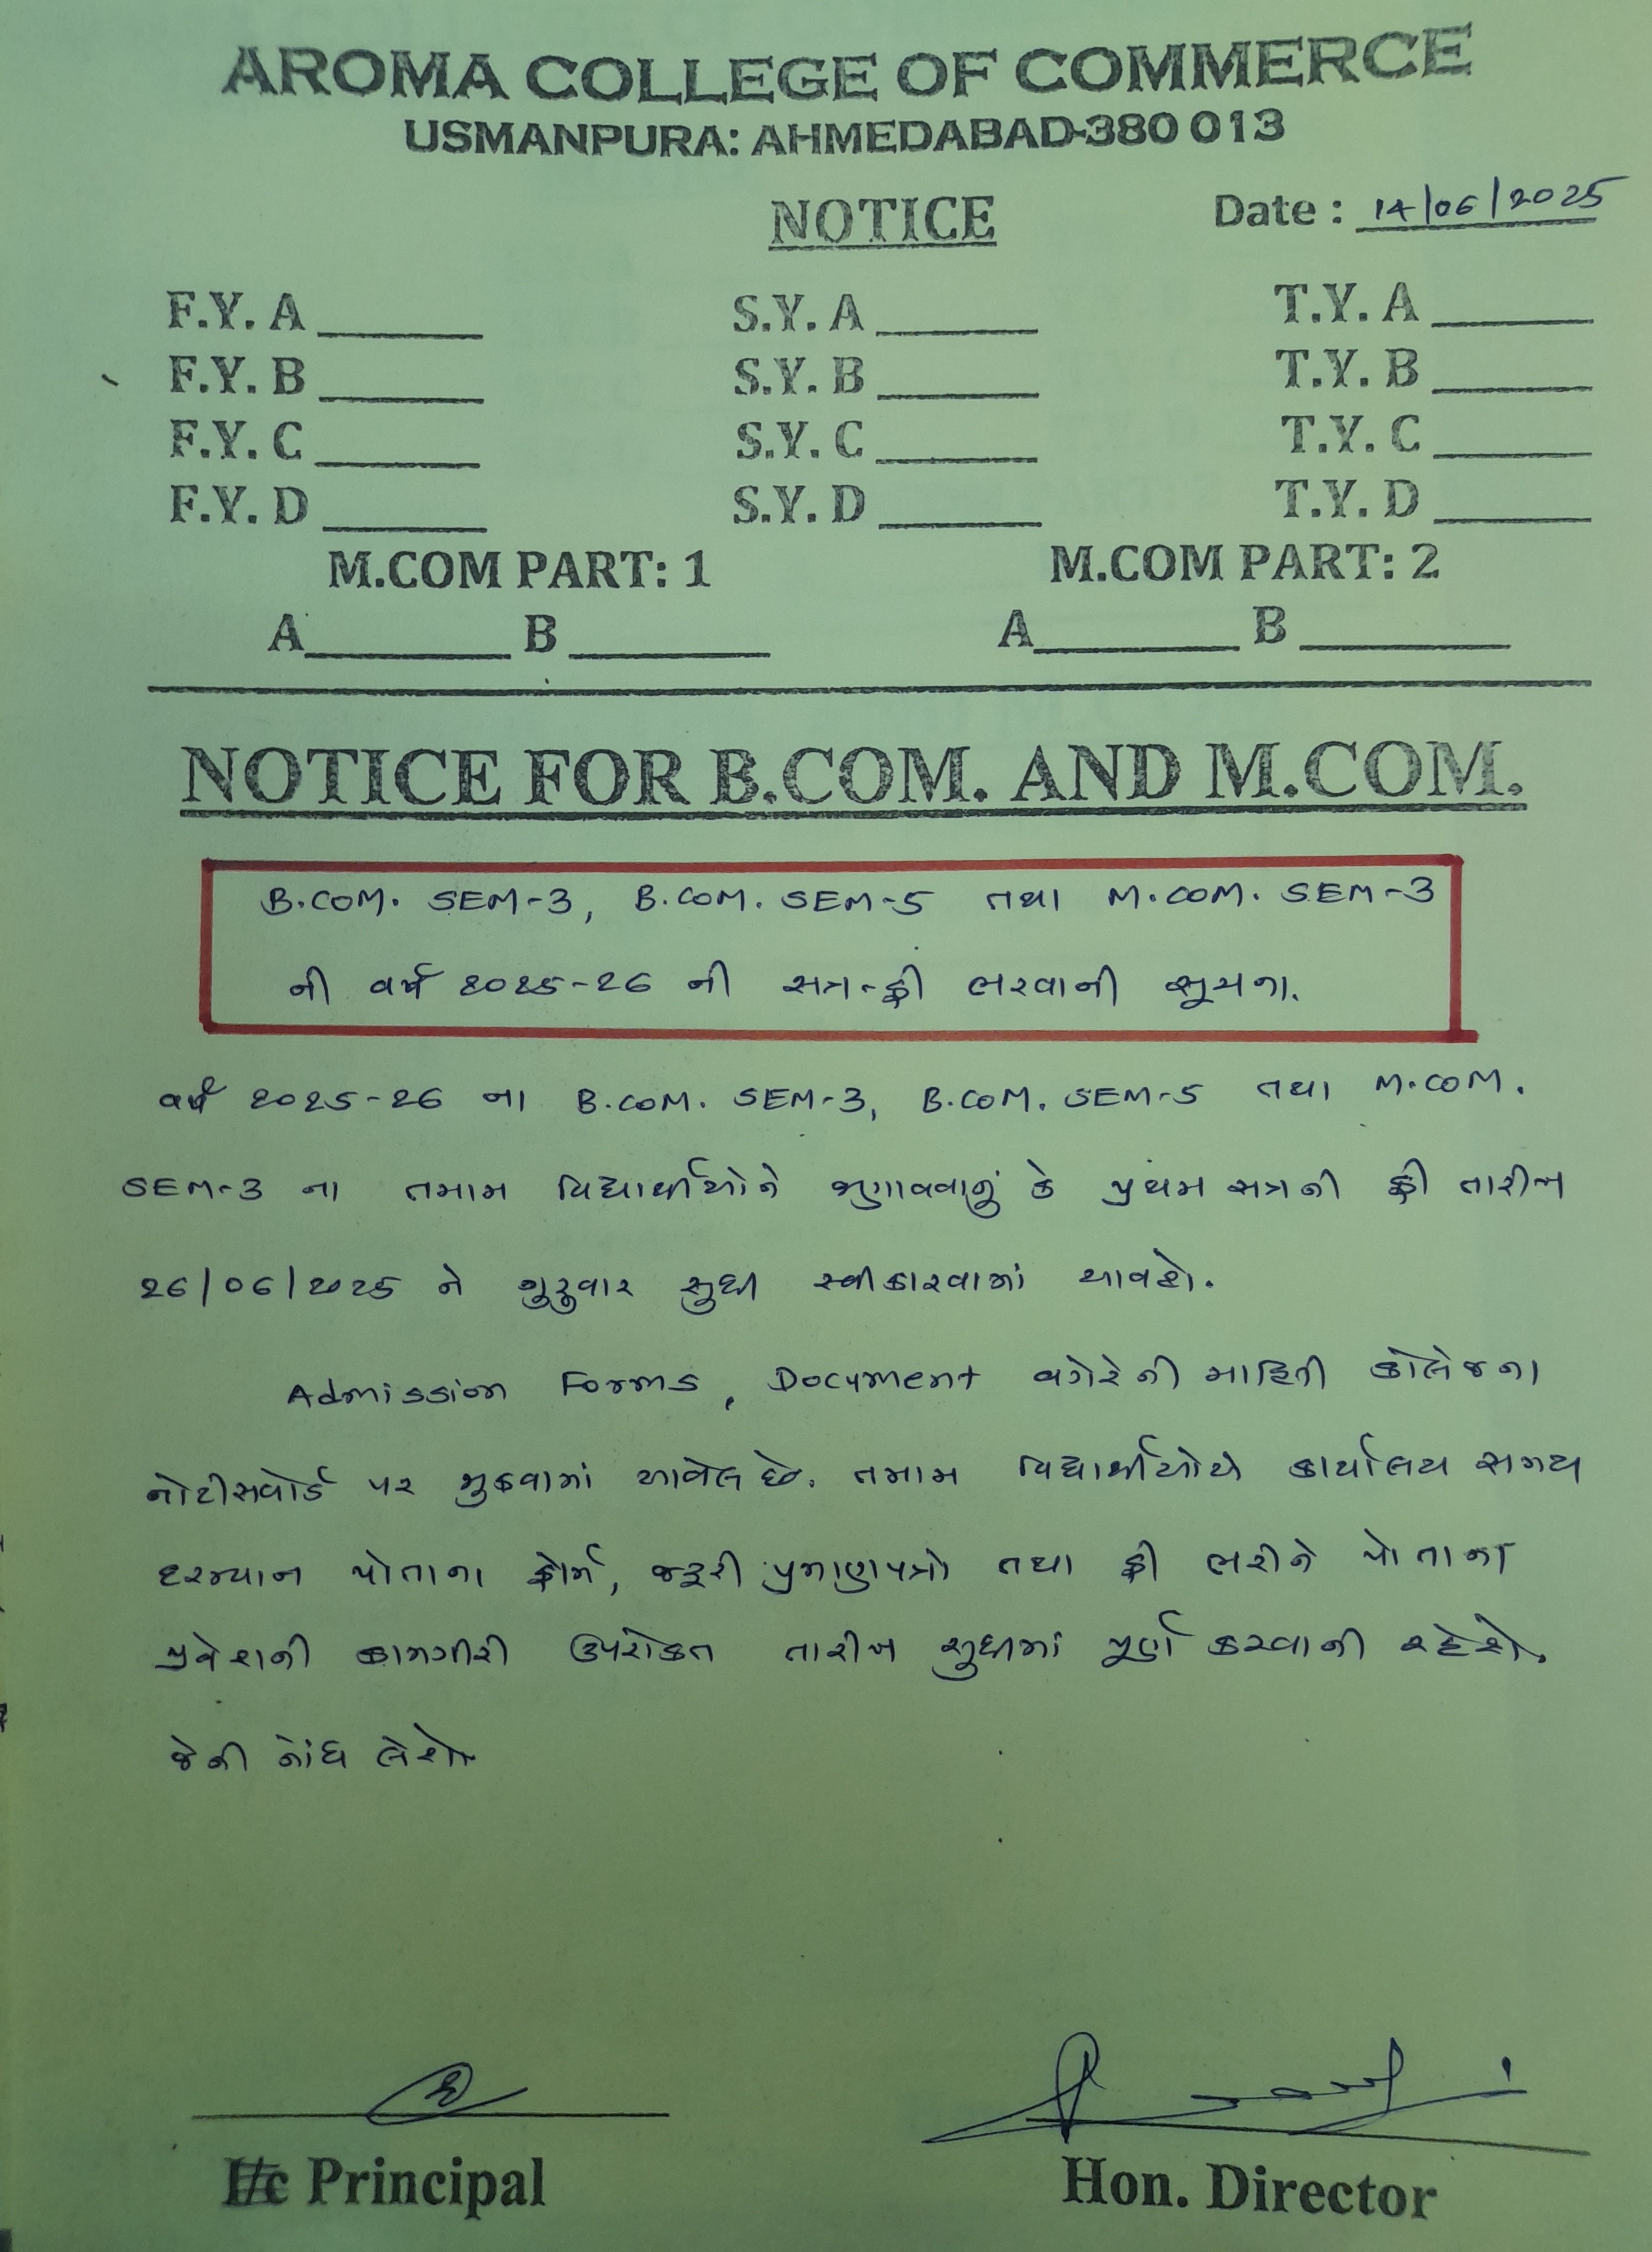 AROMA COLLEGE OF COMMERCE
USMANPURA: AHMEDABAD-380 013
NOTICE Date : 14/06/2025
F.Y. A ______ S.Y. A ______ T.Y. A ______
F.Y. B ______ S.Y. B ______ T.Y. B ______
F.Y. C ______ S.Y. C ______ T.Y. C ______
F.Y. D ______ S.Y. D ______ T.Y. D ______
M.COM PART: 1 M.COM PART: 2
A______ B ______ A______ B ______
NOTICE FOR B.COM. AND M.COM.
B.COM. SEM-3, B.COM. SEM-5 તથા M.COM. SEM-3
ની વર્ષ 2025-26 ની સત્ર-ફી ભરવાની સૂચના.
વર્ષ 2025-26 ના B.COM. SEM-3, B.COM. SEM-5 તથા M.COM.
SEM-3 ના તમામ વિદ્યાર્થીઓને જણાવવાનું કે પ્રથમ સત્રની ફી તારીખ
26/06/2025 ને ગુરુવાર સુધી સ્વીકારવામાં આવશે.
Admission Forms, Document વગેરેની માહિતી કોલેજના
નોટીસબોર્ડ પર મુકવામાં આવેલ છે. તમામ વિદ્યાર્થીઓએ કાર્યાલય સમય
દરમ્યાન પોતાના ફોર્મ, જરૂરી પ્રમાણપત્રો તથા ફી ભરીને પોતાના
પ્રવેશની કામગીરી ઉપરોક્ત તારીખ સુધીમાં પૂર્ણ કરવાની રહેશે.
જેની નોંધ લેશો.
I/c Principal Hon. Director